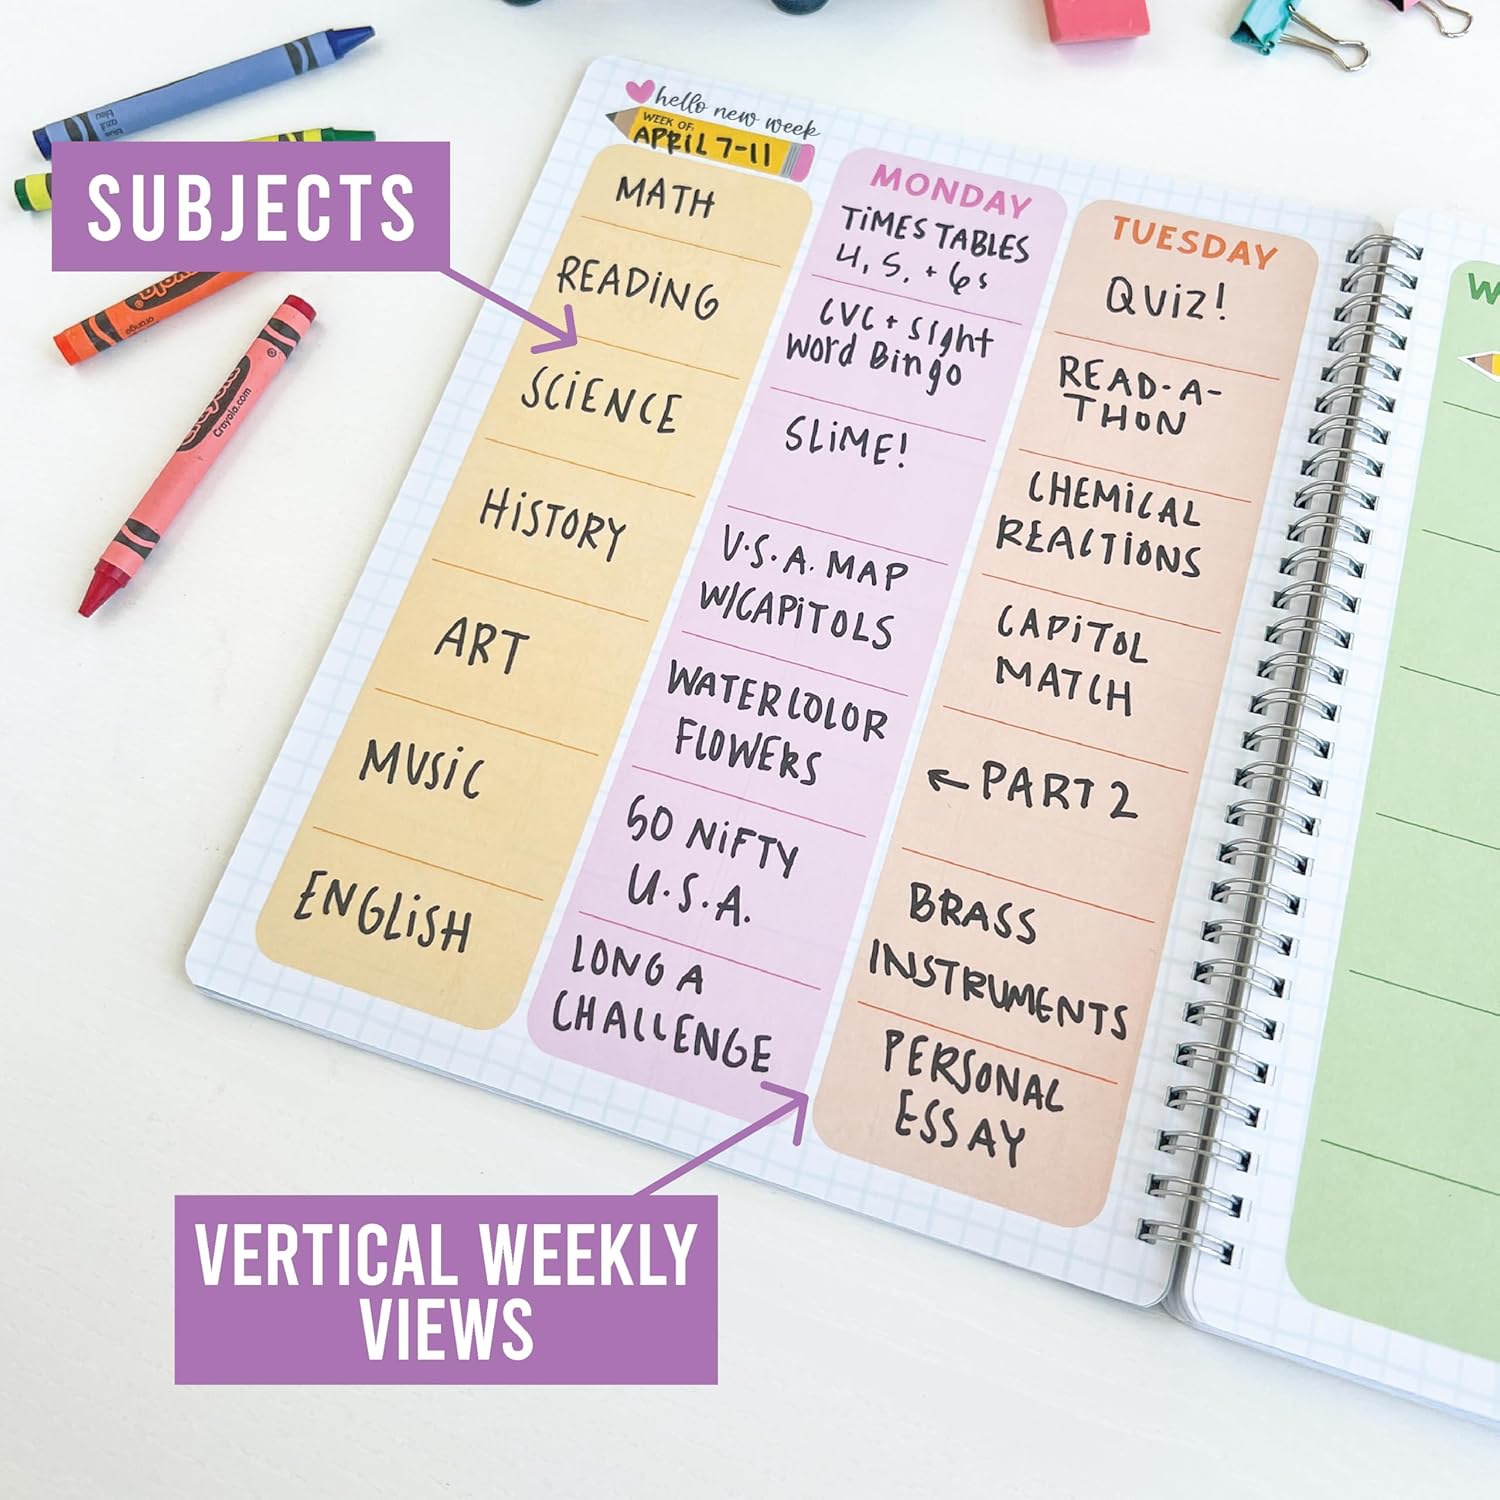 hello new week
WEEK OF:
APRIL 7-11
SUBJECTS
MATH
READING
SCIENCE
HISTORY
ART
MUSIC
ENGLISH
MONDAY
TIMES TABLES
4, 5, + 6s
CVC + sight
word Bingo
SLIME!
U.S.A. MAP
W/CAPITOLS
WATERCOLOR
FLOWERS
50 NIFTY
U.S.A.
LONG A
CHALLENGE
TUESDAY
QUIZ!
READ-A-
THON
CHEMICAL
REACTIONS
CAPITOL
MATCH
← PART 2
BRASS
INSTRUMENTS
PERSONAL
ESSAY
W
VERTICAL WEEKLY
VIEWS
blue
azul
bleu
Crayola
®
Crayola
Crayola.com